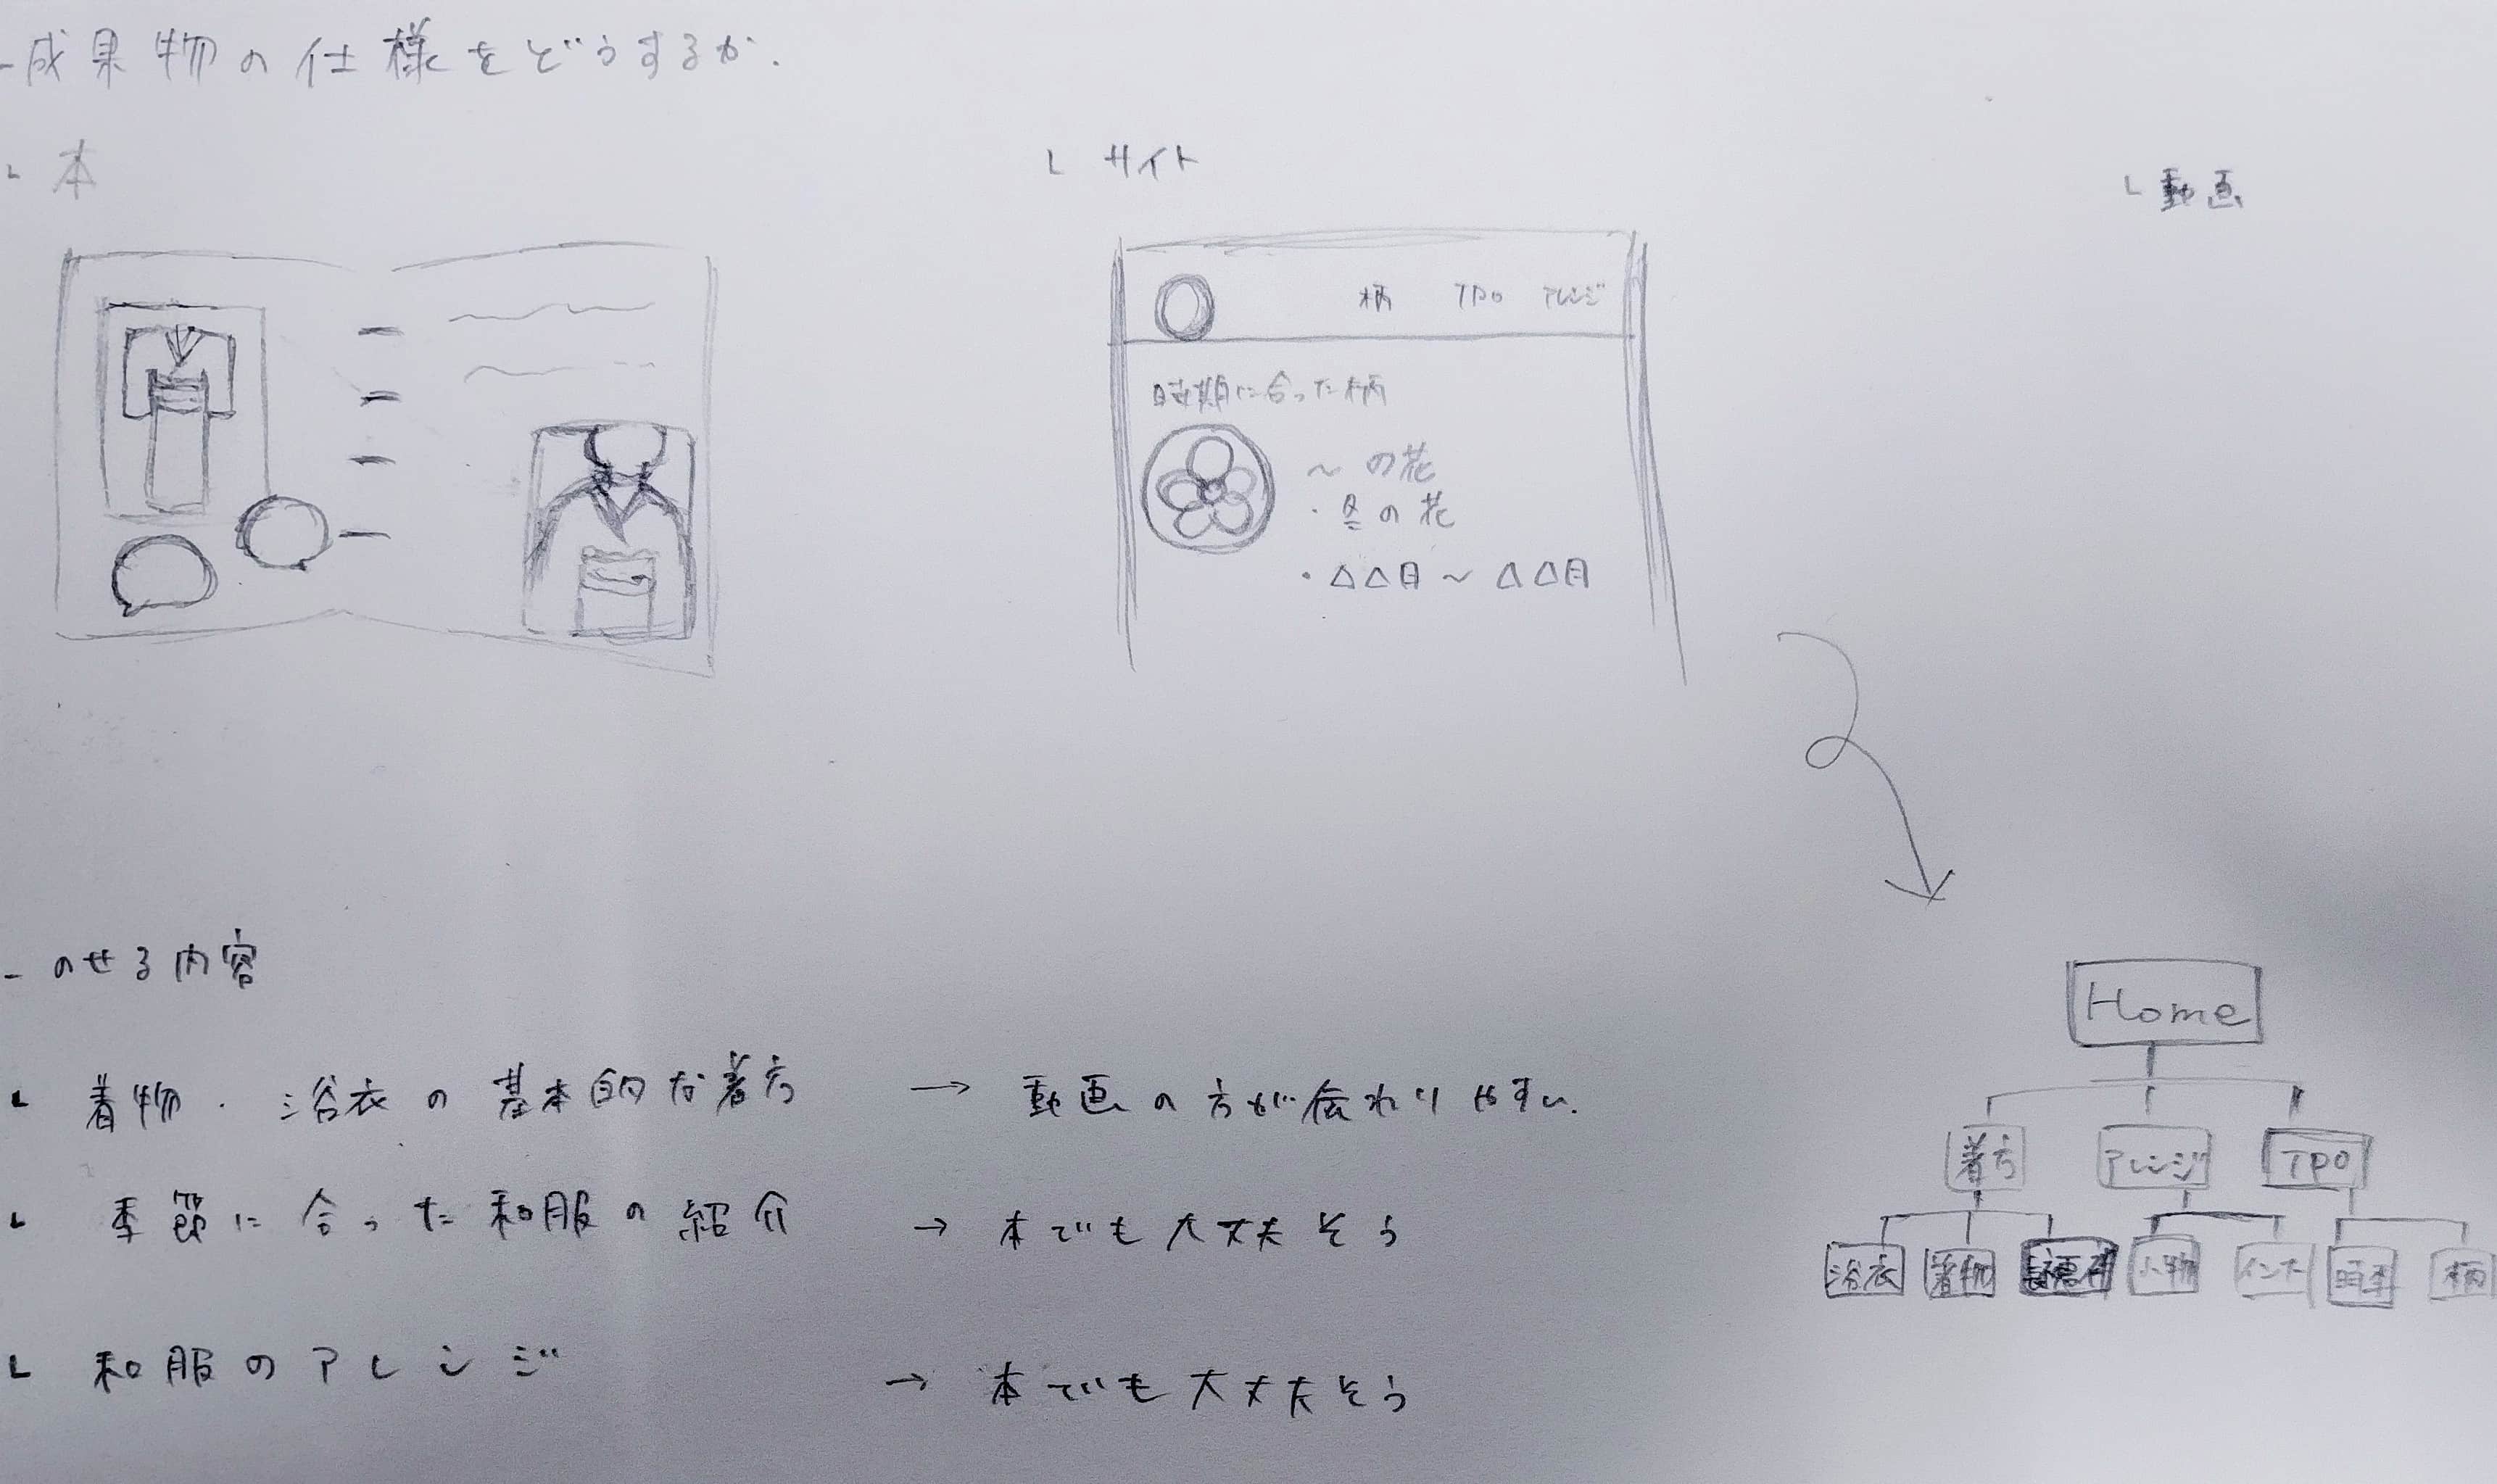 -成果物の仕様をどうするか.
└ 本
└ サイト
└ 動画
柄 TPO アレンジ
時期に合った柄
～の花
・冬の花
・△△月～△△月
-のせる内容
└ 着物・浴衣の基本的な着方 → 動画の方が伝わりやすい.
└ 季節に合った和服の紹介 → 本でも大丈夫そう
└ 和服のアレンジ → 本でも大丈夫そう
Home
着方 アレンジ TPO
浴衣 着物 小物 インナー 柄